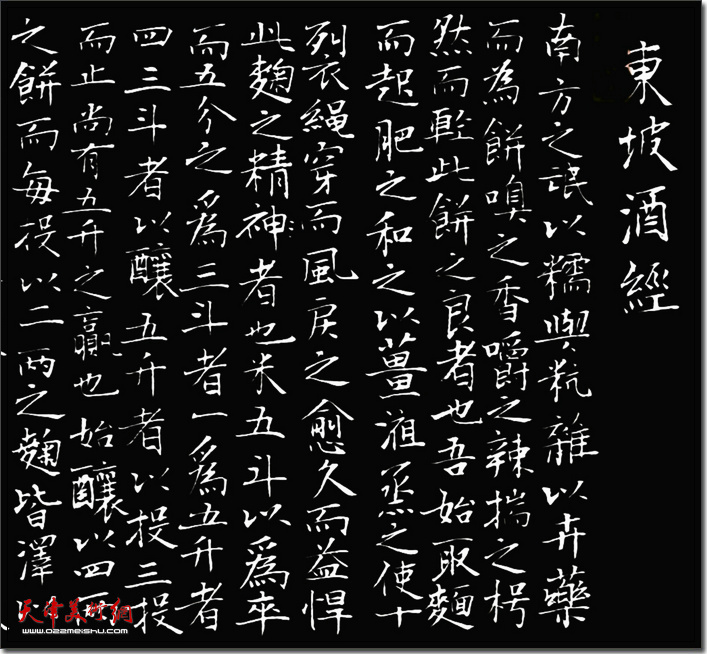 東坡酒經
南方之氓以糯與秔雜以卉藥
而為餅嗅之香嚼之辣揣之枵
然而輕此餅之良者也吾始取麵
而起肥之和之以薑烝之使十
裂繩穿而風戾之愈久而益悍
此麴之精神者也米五斗以爲率
而五分之爲三斗者一爲五升者
四三斗者以釀五升者以投三投
而止尚有五升之贏也始釀以四
之餅而每投以二兩之麴皆澤
天津美術網
www.022meishu.com